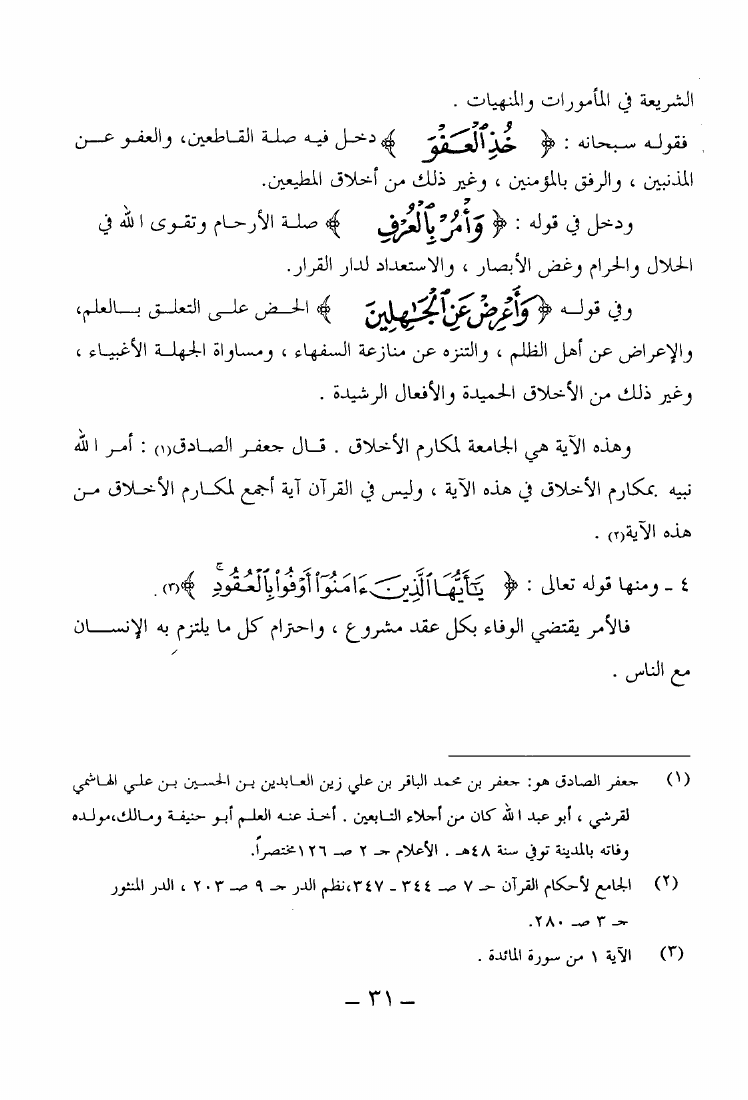 الشريعة في المأمورات والمنهيات .
فقوله سبحانه : ﴿ خُذِ ٱلْعَفْوَ ﴾ دخل فيه صلة القاطعين، والعفو عن
المذنبين ، والرفق بالمؤمنين ، وغير ذلك من أخلاق المطيعين.
ودخل في قوله : ﴿ وَأْمُرْ بِٱلْعُرْفِ ﴾ صلة الأرحام وتقوى الله في
الحلال والحرام وغض الأبصار ، والاستعداد لدار القرار.
وفي قوله ﴿ وَأَعْرِضْ عَنِ ٱلْجَٰهِلِينَ ﴾ الحض على التعلق بالعلم،
والإعراض عن أهل الظلم ، والتنزه عن منازعة السفهاء ، ومساواة الجهلة الأغبياء ،
وغير ذلك من الأخلاق الحميدة والأفعال الرشيدة .
وهذه الآية هي الجامعة لمكارم الأخلاق . قال جعفر الصادق(١) : أمر الله
نبيه بمكارم الأخلاق في هذه الآية ، وليس في القرآن آية أجمع لمكارم الأخلاق من
هذه الآية(٢) .
٤ - ومنها قوله تعالى : ﴿ يَٰٓأَيُّهَا ٱلَّذِينَ ءَامَنُوٓا۟ أَوْفُوا۟ بِٱلْعُقُودِ ۚ ﴾(٣) .
فالأمر يقتضي الوفاء بكل عقد مشروع ، واحترام كل ما يلتزم به الإنسان
مع الناس .
(١) جعفر الصادق هو: جعفر بن محمد الباقر بن علي زين العابدين بن الحسين بن علي الهاشمي
لقرشي ، أبو عبد الله كان من أجلاء التابعين . أخذ عنه العلم أبو حنيفة ومالك،مولده
وفاته بالمدينة توفي سنة ٤٨هـ . الأعلام جـ ٢ صـ ١٢٦مختصراً.
(٢) الجامع لأحكام القرآن جـ ٧ صـ ٣٤٤ - ٣٤٧،نظم الدر جـ ٩ صـ ٢٠٣ ، الدر المنثور
جـ ٣ صـ ٢٨٠.
(٣) الآية ١ من سورة المائدة .
– ٣١ –